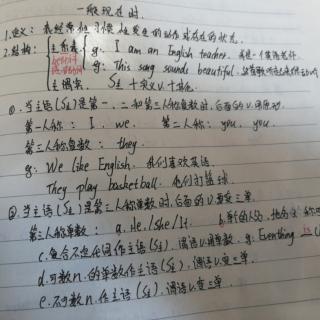 一般现在时.
1.定义: 表经常性、习惯性发生的动作或存在的状态.
2.结构: 主系表 eg: I am an English teacher. 我是一个英语老师.
eg: This song sounds beautiful.
主谓宾. S主 + 实义v. + 其他.
①.当主语(S主)是第一、二和第三人称复数时,后面的v.用原形.
第一人称: I. we. 第二人称: you. you.
第三人称复数: they.
eg: We like English. 我们喜欢英语.
They play basketball. 他们打篮球.
②.当主语(S主)是第三人称单数时,后面的v.要变三单.
第三人称单数: a. He./she/It. b.
c.复合不定代词作主语(S主),谓语v.用单数. eg: Everything is
d.可数n.的单数作主语(S主),谓语v.变三单.
e.不可数n.作主语(S主),谓语v.变三单.